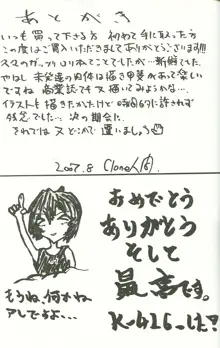 あとがき
いつも買って下さる方 初めて手に取った方
この度はお買い上げいただきましてありがとうございます!!!
久々のガッツリロリ本てことでしたが…新鮮でした
やはし 未発達の肉体は描き甲斐があって楽しい
ですね 商業誌でも又描いてみようかな…
イラストも描きたかったけど時間的に許されず
残念でした… 次の期会に。
それでは又どこかで逢いましょう
2007.8 Clone人間
おめでとう
ありがとう
そして
最高です。
もうね、何かね
アレですよ…